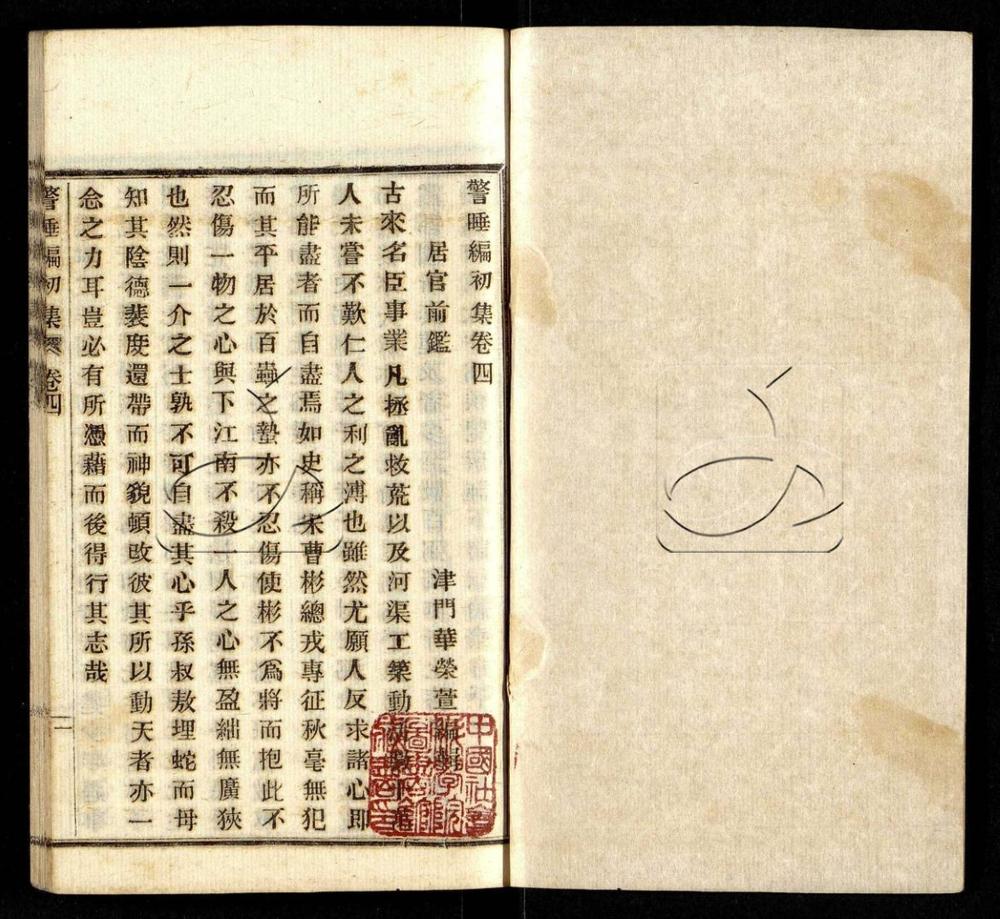 警睡編初集卷四
居官前鑑
津門華榮萱編輯
古來名臣事業凡拯亂救荒以及河渠工築動
人未嘗不歎仁人之利之溥也雖然尤願人反求諸心即
所能盡者而自盡焉如史稱宋曹彬總戎專征秋毫無犯
而其平居於百蟲之蟄亦不忍傷使彬不爲將而抱此不
忍傷一物之心與下江南不殺一人之心無盈絀無廣狹
也然則一介之士孰不可自盡其心乎孫叔敖埋蛇而母
知其陰德裴度還帶而神貌頓改彼其所以動天者亦一
念之力耳豈必有所憑藉而後得行其志哉
警睡編初集 卷四
一
中國社會